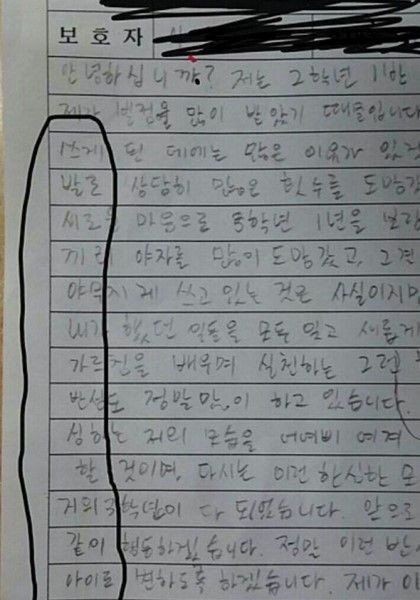 보호자
안녕하십니까? 저는 2학년 11반
제가 벌점을 많이 받았기 때문입니다
쓰게 된 데에는 많은 이유가 있겠
발로 상당히 많은 횟수를 도망갔
새로운 마음으로 3학년 1년을 보람
끼리 야자를 많이 도망갔고, 그건
야무지게 쓰고 있는 것은 사실이지만
내가 했던 일들을 모두 잊고 새롭게
가르친을 배우며 실천하는 그런
반성도 정말 많이 하고 있습니다
심하는 저의 모습을 어여삐 여겨
할 것이며, 다시는 이런 한심한 모
거의 3학년이 다 되었습니다. 앞으로
같이 행동하겠습니다. 정말 이런 반
아이로 변하도록 하겠습니다. 제가 이